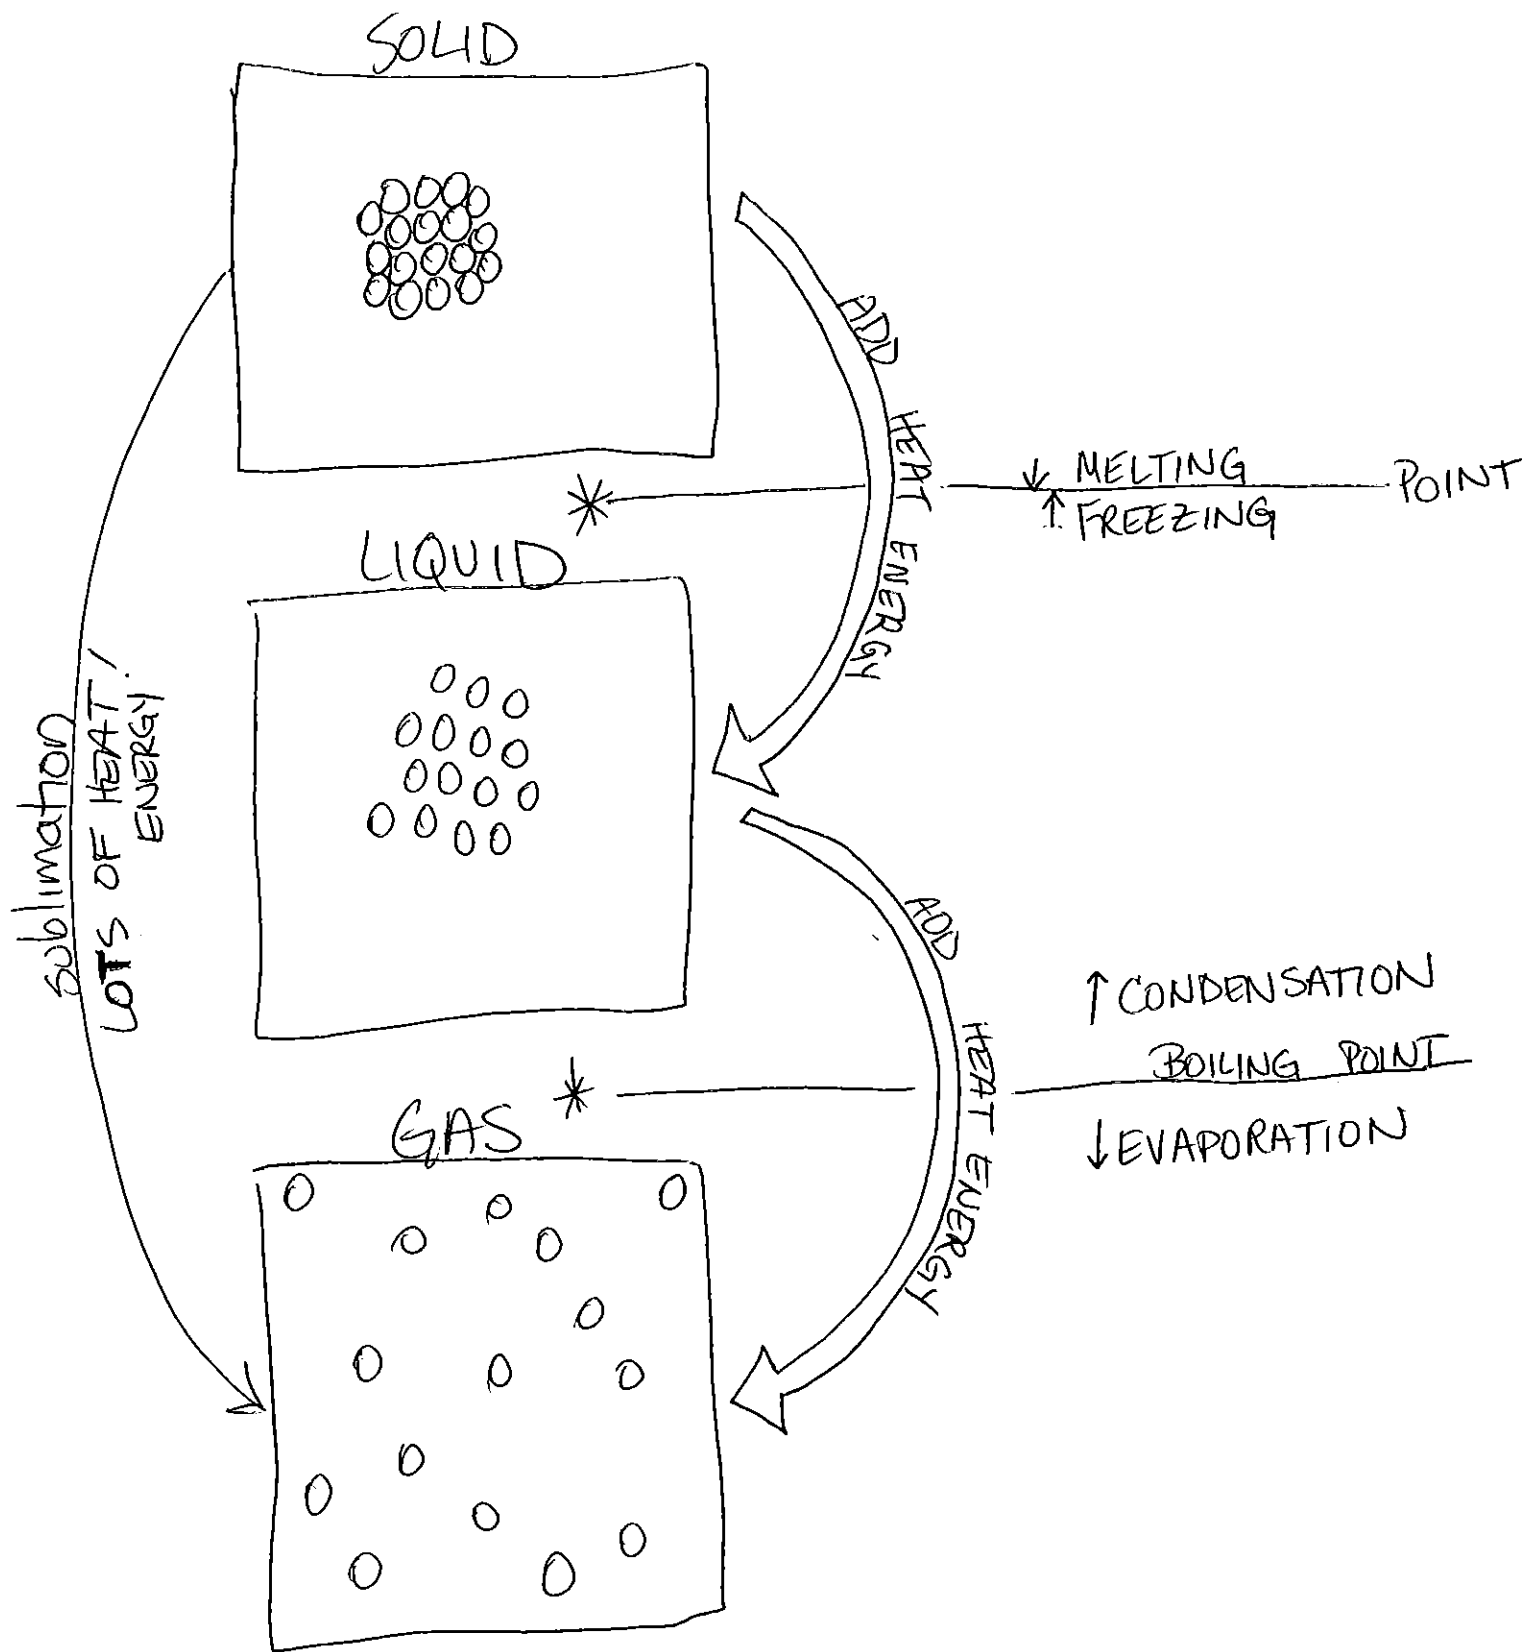 SOLID
ADD HEAT ENERGY
↓ MELTING
↑ FREEZING
POINT
LIQUID
sublimation
LOTS OF HEAT!
ENERGY
ADD HEAT ENERGY
↑ CONDENSATION
BOILING POINT
↓ EVAPORATION
GAS